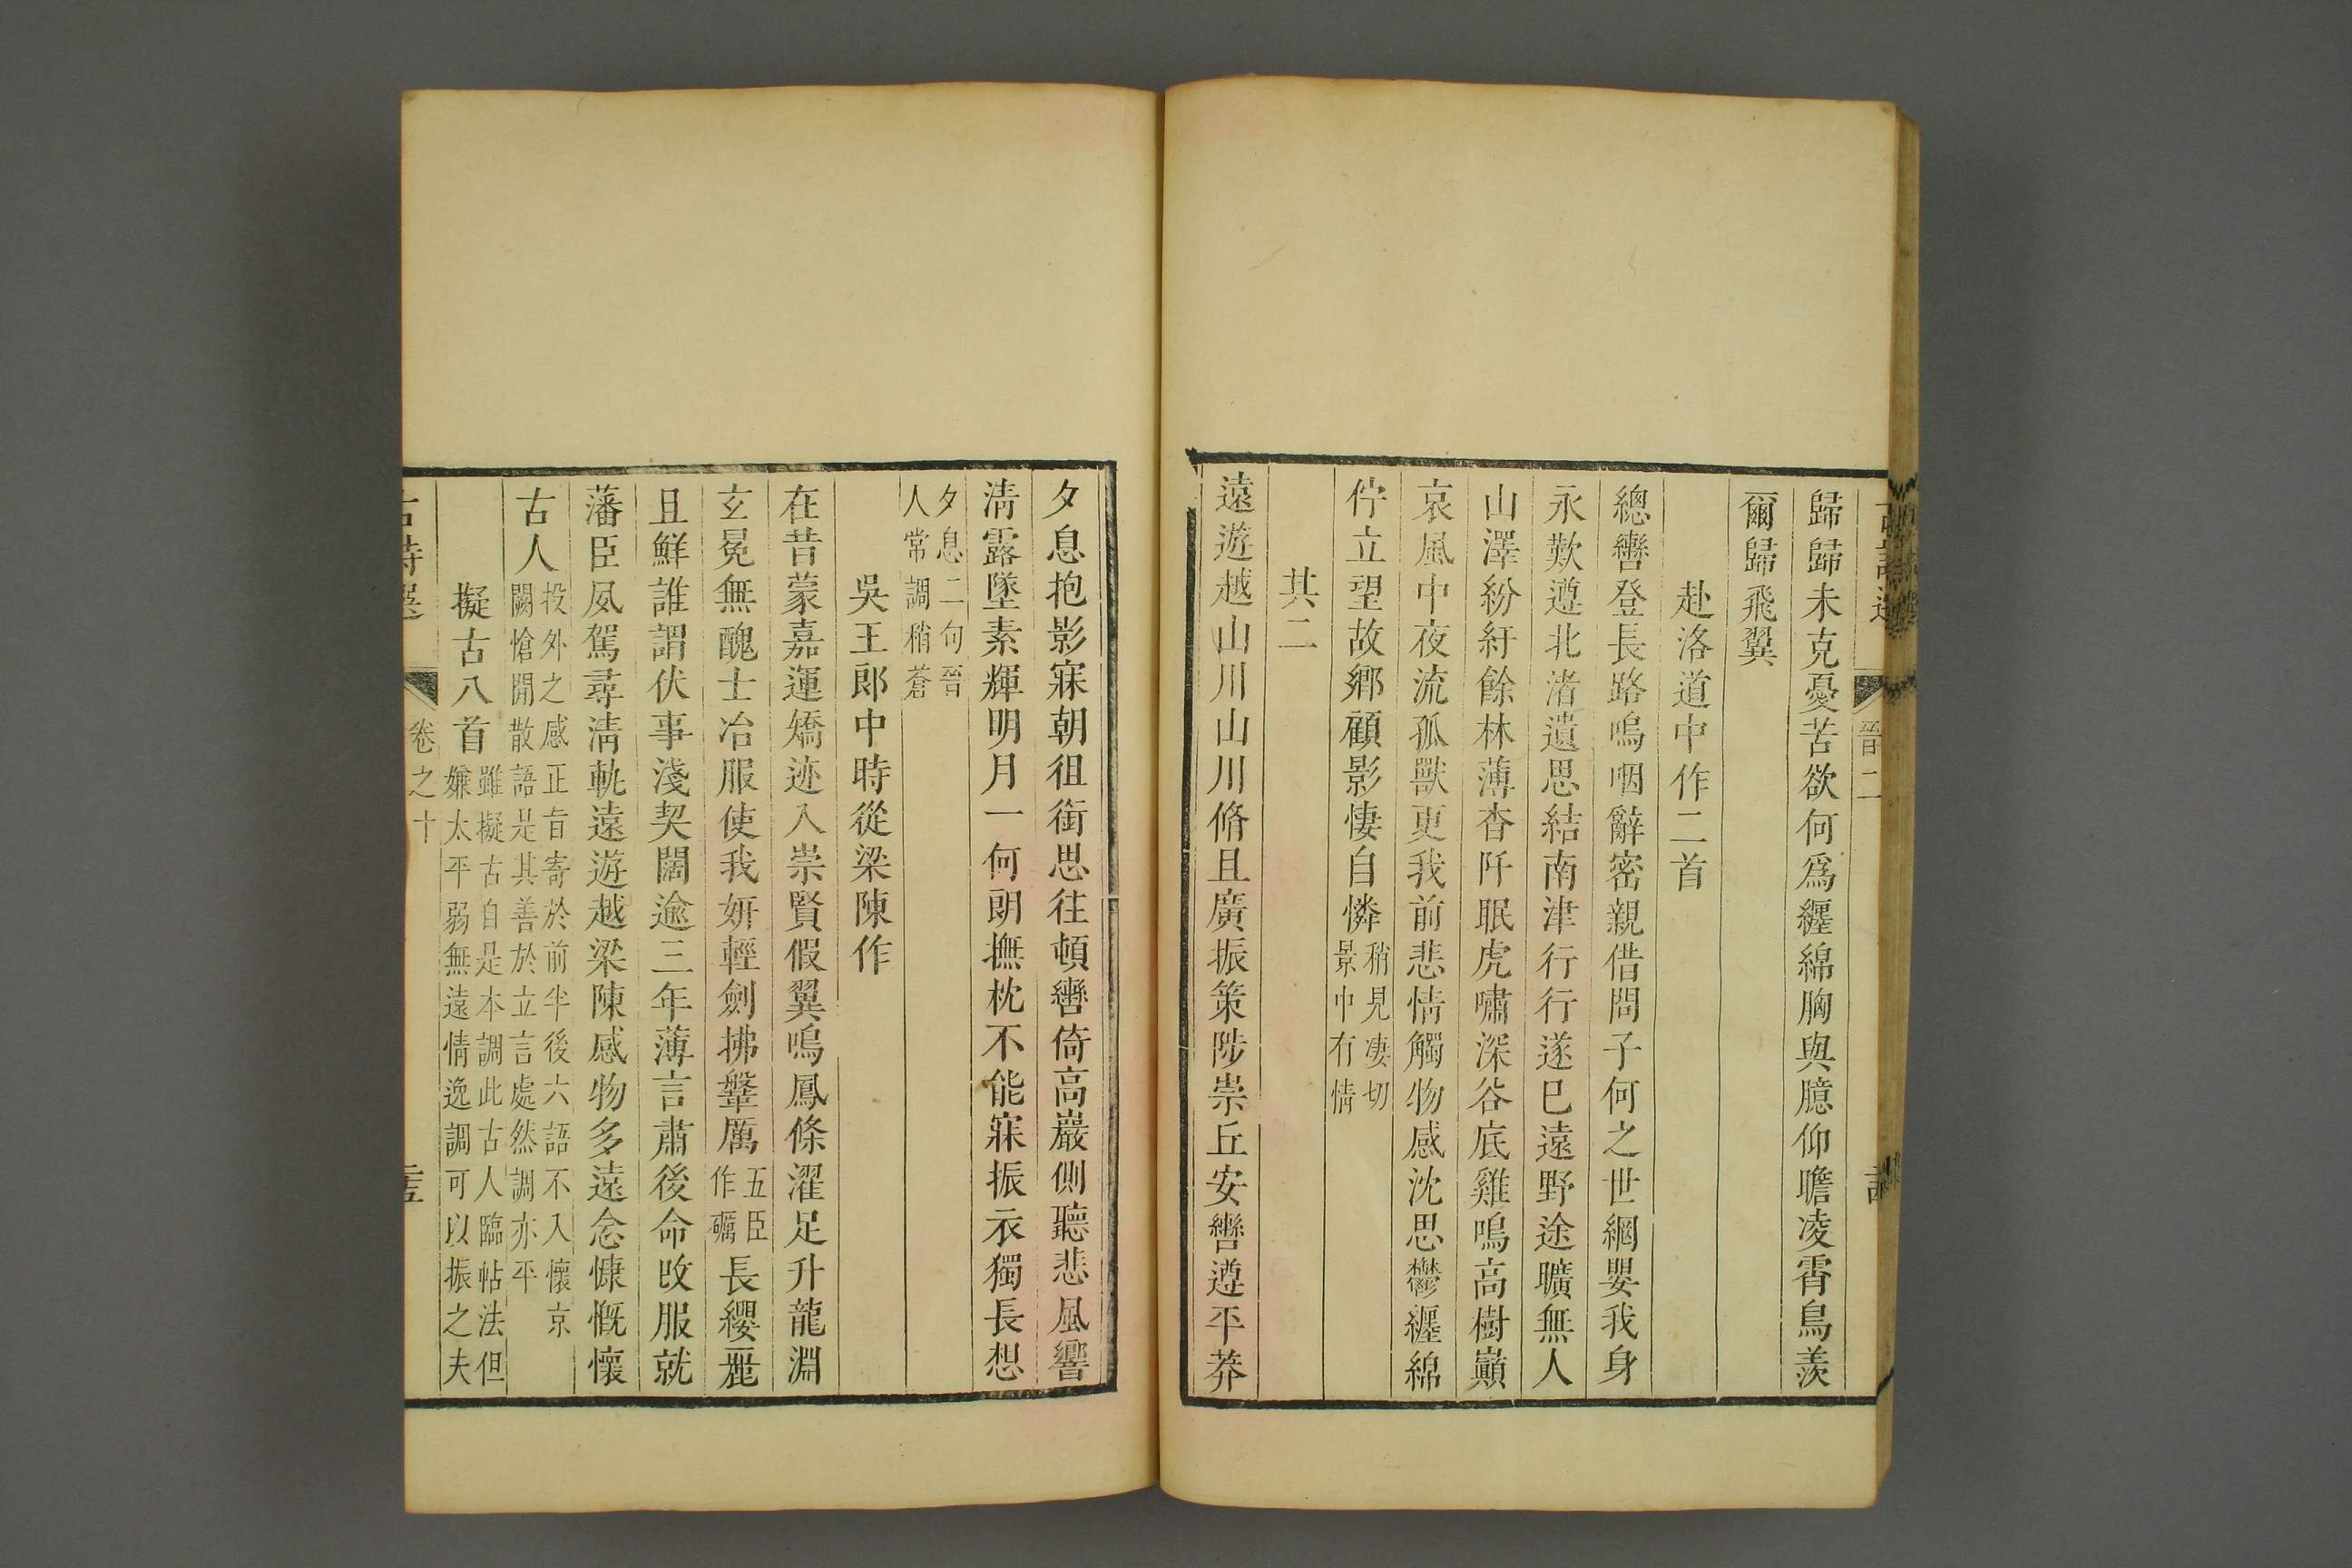 晉二
歸歸未克憂苦欲何爲纏綿胸與臆仰瞻凌霄鳥羨
爾歸飛翼
赴洛道中作二首
總轡登長路嗚咽辭密親借問子何之世網嬰我身
永歎遵北渚遺思結南津行行遂已遠野途曠無人
山澤紛紆餘林薄杳阡眠虎嘯深谷底雞鳴高樹巔
哀風中夜流孤獸更我前悲情觸物感沈思鬱纏綿
佇立望故鄉顧影悽自憐稍見凄切景中有情
其二
遠遊越山川山川脩且廣振策陟崇丘安轡遵平莽
夕息抱影寐朝徂銜思往頓轡倚高巖側聽悲風響
淸露墜素輝明月一何朗撫枕不能寐振衣獨長想
夕息二句晉人常調稍蒼
吳王郎中時從梁陳作
在昔蒙嘉運矯迹入崇賢假翼鳴鳳條濯足升龍淵
玄冕無醜士冶服使我妍輕劍拂鞶厲五臣作礪長纓麗
且鮮誰謂伏事淺契闊逾三年薄言肅後命改服就
藩臣夙駕尋淸軌遠遊越梁陳感物多遠念慷慨懷
古人投外之感正旨寄於前半後六語不入懷京闕愴閒散語是其善於立言處然調亦平
擬古八首雖擬古自是本調此古人臨帖法但嫌太平弱無遠情逸調可以振之夫
古詩選 卷之十